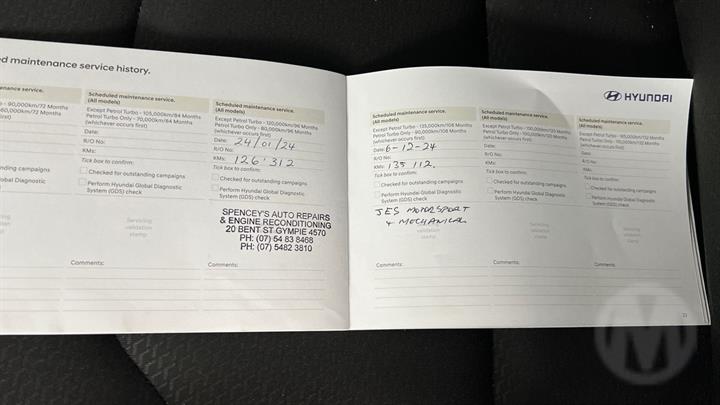 ed maintenance service history.
Scheduled maintenance service.
(All models)
Except Petrol Turbo - 105,000km/84 Months
Petrol Turbo Only - 70,000km/84 Months
(whichever occurs first)
Date:
R/O No:
KMs:
Tick box to confirm:
Checked for outstanding campaigns
Perform Hyundai Global Diagnostic
System (GDS) check
Servicing
validation
stamp
Comments:
Scheduled maintenance service.
(All models)
Except Petrol Turbo - 120,000km/96 Months
Petrol Turbo Only - 80,000km/96 Months
(whichever occurs first)
Date: 24/01/24
R/O No:
KMs: 126'312
Tick box to confirm:
Checked for outstanding campaigns
Perform Hyundai Global Diagnostic
System (GDS) check
SPENCEY'S AUTO REPAIRS
& ENGINE RECONDITIONING
20 BENT ST GYMPIE 4570
PH: (07) 54 83 8468
PH: (07) 5482 3810
Comments:
HYUNDAI
Scheduled maintenance service.
(All models)
Except Petrol Turbo - 135,000km/108 Months
Petrol Turbo Only - 90,000km/108 Months
(whichever occurs first)
Date: 6-12-24
R/O No:
KMs: 135 112.
Tick box to confirm:
Checked for outstanding campaigns
Perform Hyundai Global Diagnostic
System (GDS) check
JES MOTORSPORT
+ MECHANICAL
validation
stamp
Comments:
Scheduled maintenance service.
(All models)
(whichever occurs first)
Date:
R/O No:
KMs:
Tick box to confirm:
Checked for outstanding campaigns
Perform Hyundai Global Diagnostic
System (GDS) check
Servicing
validation
stamp
Comments:
Scheduled maintenance service.
(All models)
(whichever occurs first)
Date:
R/O No:
KMs:
Tick box to confirm:
Checked for outstanding campaigns
Perform Hyundai Global Diagnostic
System (GDS) check
Servicing
validation
stamp
Comments:
M